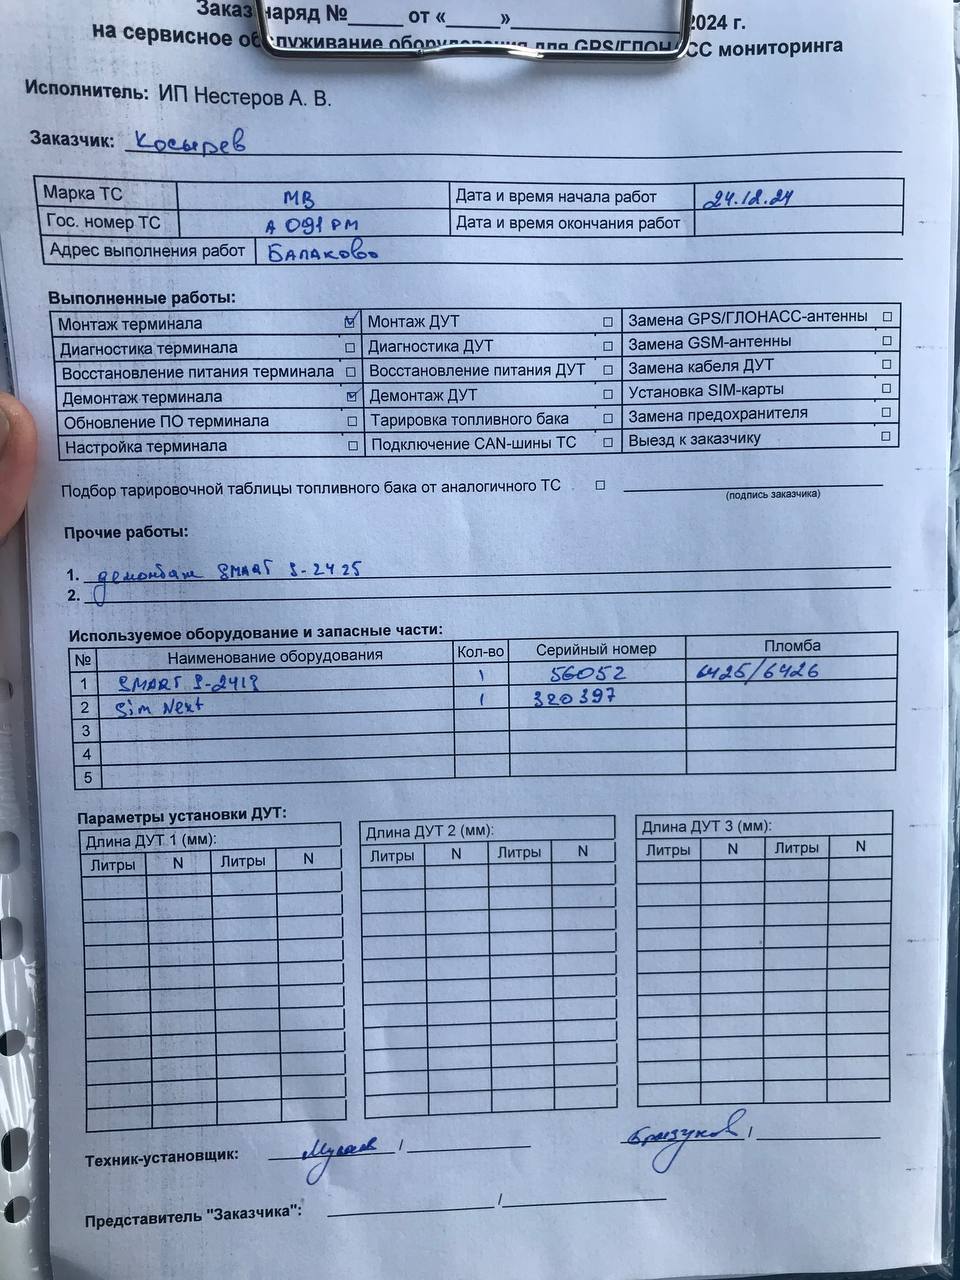 Заказ-наряд №_____ от «_____»______________2024 г.
на сервисное обслуживание оборудования для GPS/ГЛОНАСС мониторинга
Исполнитель: ИП Нестеров А. В.
Заказчик: Косырев
Марка ТС МВ Дата и время начала работ 24.12.24
Гос. номер ТС А 091 РМ Дата и время окончания работ
Адрес выполнения работ Балаково
Выполненные работы:
Монтаж терминала ☑ Монтаж ДУТ ☐ Замена GPS/ГЛОНАСС-антенны ☐
Диагностика терминала ☐ Диагностика ДУТ ☐ Замена GSM-антенны ☐
Восстановление питания терминала ☐ Восстановление питания ДУТ ☐ Замена кабеля ДУТ ☐
Демонтаж терминала ☑ Демонтаж ДУТ ☐ Установка SIM-карты ☐
Обновление ПО терминала ☐ Тарировка топливного бака ☐ Замена предохранителя ☐
Настройка терминала ☐ Подключение CAN-шины ТС ☐ Выезд к заказчику ☐
Подбор тарировочной таблицы топливного бака от аналогичного ТС ☐
(подпись заказчика)
Прочие работы:
1. демонтаж SMART S-2425
2.
Используемое оборудование и запасные части:
№ Наименование оборудования Кол-во Серийный номер Пломба
1 SMART S-2413 1 56052 6425/6426
2 Sim Next 1 320397
3
4
5
Параметры установки ДУТ:
Длина ДУТ 1 (мм): Длина ДУТ 2 (мм): Длина ДУТ 3 (мм):
Литры N Литры N Литры N Литры N Литры N Литры N
Техник-установщик: / /
Представитель "Заказчика": /